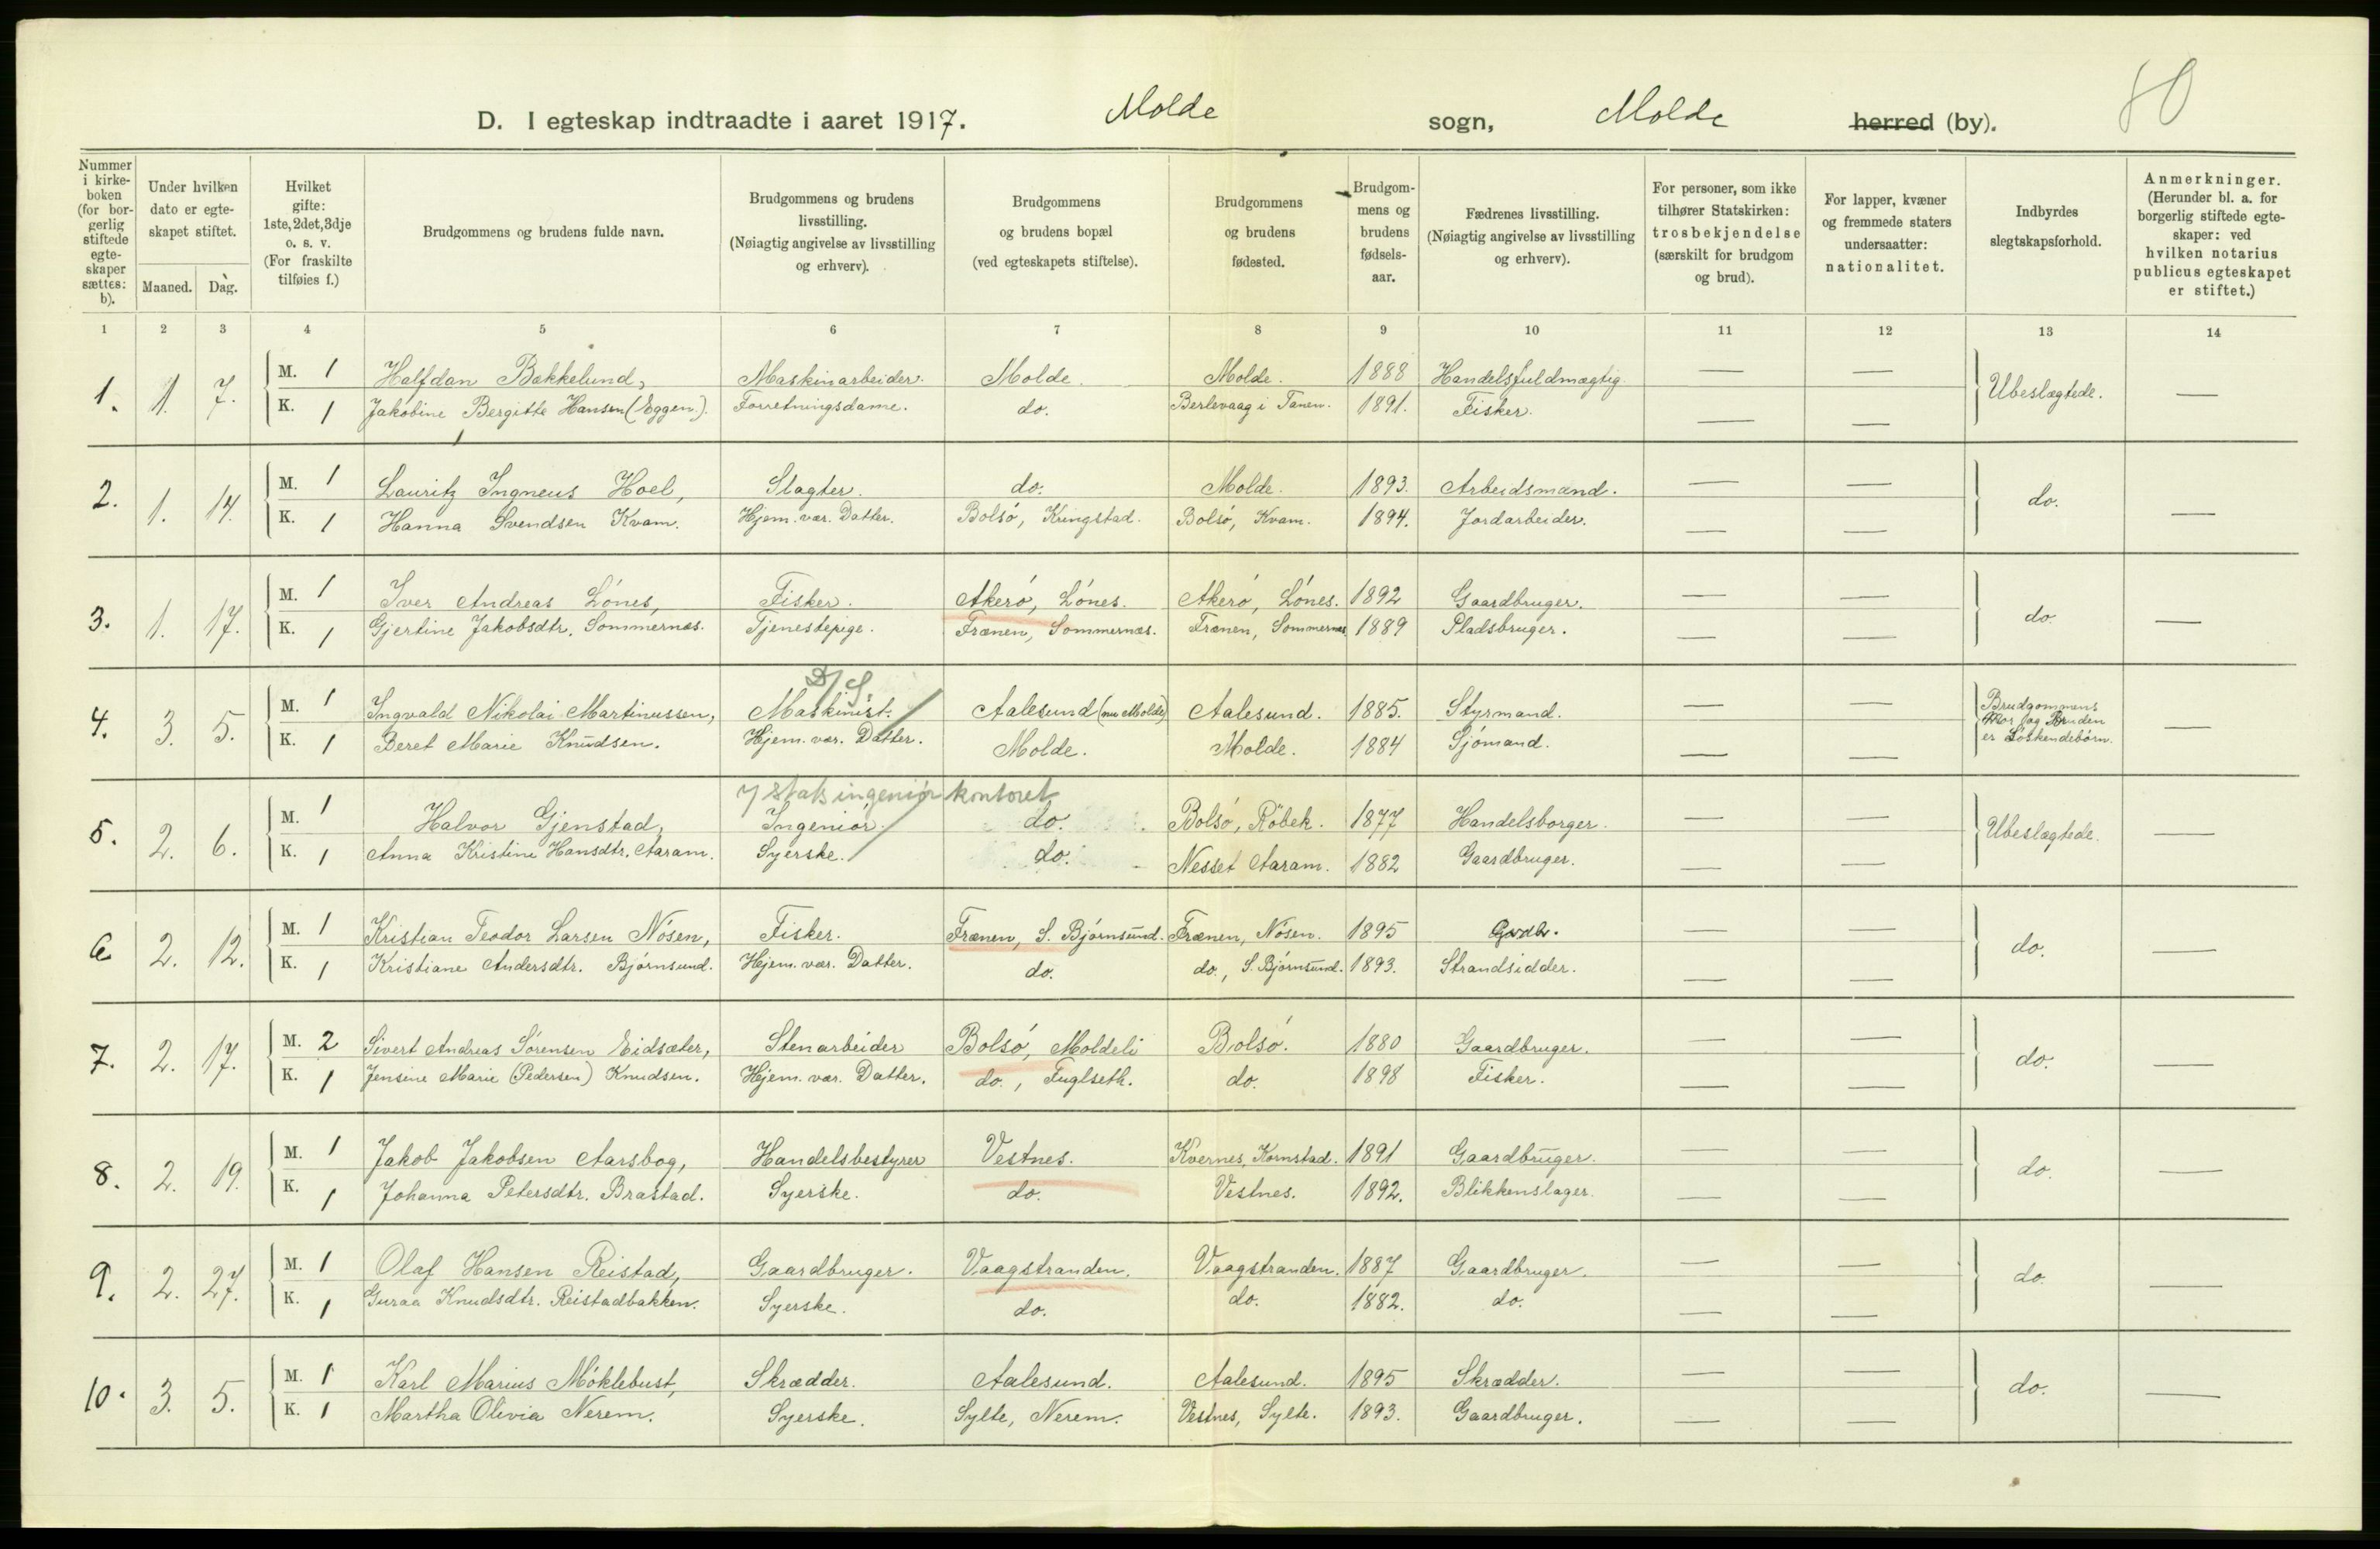 80
D. I egteskap indtraadte i aaret 1917. Molde sogn, Molde herred (by).
Nummer i kirkeboken (for borgerlig stiftede egteskaper sættes: b).
Under hvilken dato er egteskapet stiftet.
Maaned. Dag.
Hvilket gifte: 1ste, 2det, 3dje o. s. v. (For fraskilte tilføies f.)
Brudgommens og brudens fulde navn.
Brudgommens og brudens livsstilling. (Nøiagtig angivelse av livsstilling og erhverv).
Brudgommens og brudens bopæl (ved egteskapets stiftelse).
Brudgommens og brudens fødested.
Brudgommens og brudens fødselsaar.
Fædrenes livsstilling. (Nøiagtig angivelse av livsstilling og erhverv).
For personer, som ikke tilhører Statskirken: trosbekjendelse (særskilt for brudgom og brud).
For lapper, kvæner og fremmede staters undersaatter: nationalitet.
Indbyrdes slegtskapsforhold.
Anmerkninger. (Herunder bl. a. for borgerlig stiftede egteskaper: ved hvilken notarius publicus egteskapet er stiftet.)
1 2 3 4 5 6 7 8 9 10 11 12 13 14
1. 1. 7. M. 1 Halfdan Bakkelund, Maskinarbeider. Molde. Molde. 1888 Handelsfuldmægtig. — — Ubeslægtede. —
K. 1 Jakobine Bergitte Hansen (Eggen). Forretningsdame. do. Berlevaag i Tanen. 1891. Fisker. — —
2. 1. 14. M. 1 Lauritz Ingneus Hoel, Slagter. do. Molde. 1893. Arbeidsmand. — — do. —
K. 1 Hanna Svendsen Kvam. Hjem. vær. Datter. Bolsó, Kringstad. Bolsó, Kvam. 1894. Jordarbeider. — —
3. 1. 17. M. 1 Iver Andreas Lónes, Fisker. Akeró, Lónes. Akeró, Lónes. 1892 Gaardbruger. — — do. —
K. 1 Gjertine Jakobsdtr. Sommernæs. Tjenestepige. Frænen, Sommernæs. Frænen, Sommernæs 1889 Pladsbruger. — —
D/S
4. 3. 5. M. 1 Ingvald Nikolai Martinussen, Maskinist. Aalesund (nu Molde) Aalesund. 1885. Styrmand. — — Brudgommens Mor og Bruden er Sóskendebórn. —
K. 1 Beret Marie Knudsen. Hjem. vær. Datter. Molde. Molde. 1884 Sjómand. — —
7 Statsingeniør kontoret
5. 2. 6. M. 1 Halvor Gjenstad, Ingeniór. do. Bolsó, Róbek. 1877 Handelsborger. — — Ubeslægtede. —
K. 1 Anna Kristine Hansdtr. Aaram. Syerske. do. Nesset Aaram. 1882 Gaardbruger. — —
6 2. 12. M. 1 Kristian Teodor Larsen Nósen, Fisker. Frænen, S. Bjórnsund. Frænen, Nósen. 1895 Gardb. — — do. —
K. 1 Kristiane Andersdtr. Bjórnsund. Hjem. vær. Datter. do. do., S. Bjórnsund. 1893. Strandsidder. — —
7. 2. 17. M. 2 Sivert Andreas Sórensen Eidsæter, Stenarbeider Bolsó, Moldeli Bolsó. 1880 Gaardbruger. — — do. —
K. 1 Jensine Marie (Pedersen) Knudsen. Hjem. vær. Datter. do., Fuglseth. do. 1898 Fisker. — —
8. 2. 19. M. 1 Jakob Jakobsen Aarsbog, Handelsbestyrer Vestnes. Kvernes, Kornstad. 1891 Gaardbruger. — — do. —
K. 1 Johanna Petersdtr. Brastad. Syerske. do. Vestnes. 1892. Blikkenslager. — —
9. 2. 27. M. 1 Olaf Hansen Reistad, Gaardbruger. Vaagstranden. Vaagstranden. 1887 Gaardbruger. — — do. —
K. 1 Guraa Knudsdtr. Reistadbakken. Syerske. do. do. 1882. do. — —
10. 3. 5. M. 1 Karl Marius Móklebust, Skrædder. Aalesund. Aalesund. 1895 Skrædder. — — do. —
K. 1 Martha Olivia Nerem. Syerske. Sylte, Nerem. Vestnes, Sylte. 1893. Gaardbruger. — —